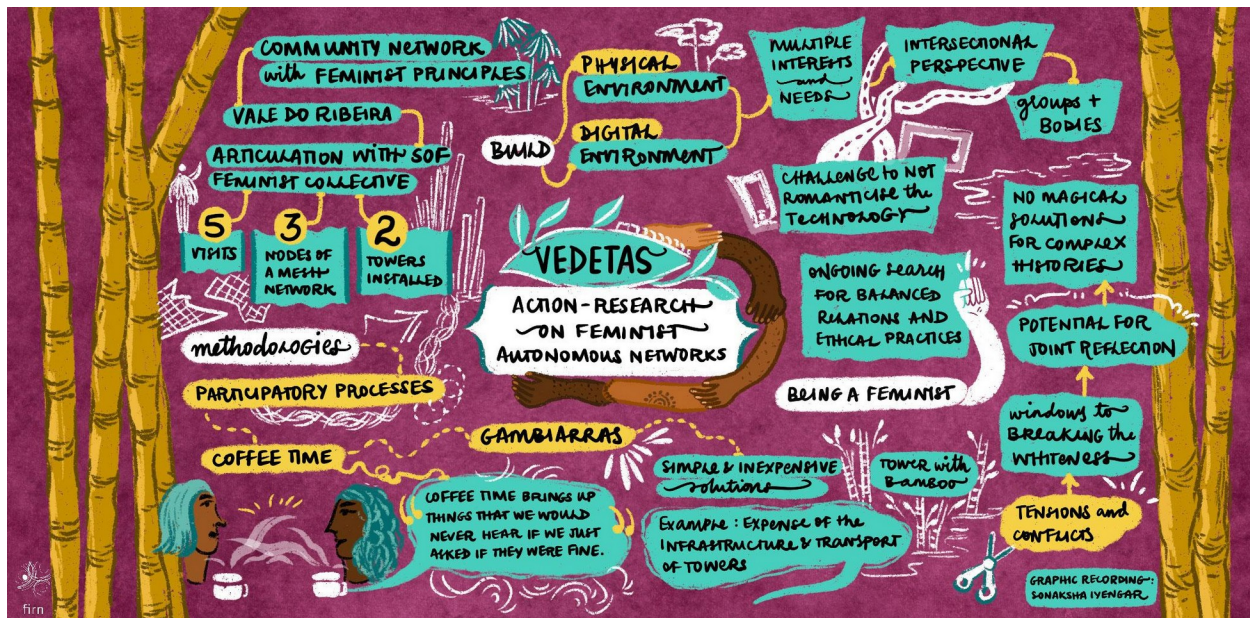 COMMUNITY NETWORK
with FEMINIST PRINCIPLES
VALE DO RIBEIRA
ARTICULATION WITH SOF
FEMINIST COLLECTIVE
5
VISITS
3
NODES OF
A MESH
NETWORK
2
TOWERS
INSTALLED
BUILD
PHYSICAL
ENVIRONMENT
DIGITAL
ENVIRONMENT
MULTIPLE
INTERESTS
and
NEEDS
INTERSECTIONAL
PERSPECTIVE
groups +
BODIES
CHALLENGE to NOT
ROMANTICISE the
TECHNOLOGY
VEDETAS
ACTION-RESEARCH
ON FEMINIST
AUTONOMOUS NETWORKS
methodologies
PARTICIPATORY PROCESSES
COFFEE TIME
GAMBIARRAS
COFFEE TIME BRINGS UP
THINGS THAT WE WOULD
NEVER HEAR IF WE JUST
ASKED IF THEY WERE FINE.
SIMPLE & INEXPENSIVE
solutions
Example: EXPENSE OF the
INFRASTRUCTURE & TRANSPORT
OF TOWERS
TOWER with
BAMBOO
ONGOING SEARCH
FOR BALANCED
RELATIONS AND
ETHICAL PRACTICES
BEING A FEMINIST
NO MAGICAL
SOLUTIONS
FOR COMPLEX
HISTORIES
POTENTIAL FOR
JOINT REFLECTION
windows to
BREAKING the
WHITENESS
TENSIONS and
CONFLICTS
GRAPHIC RECORDING:
SONAKSHA IYENGAR
firn